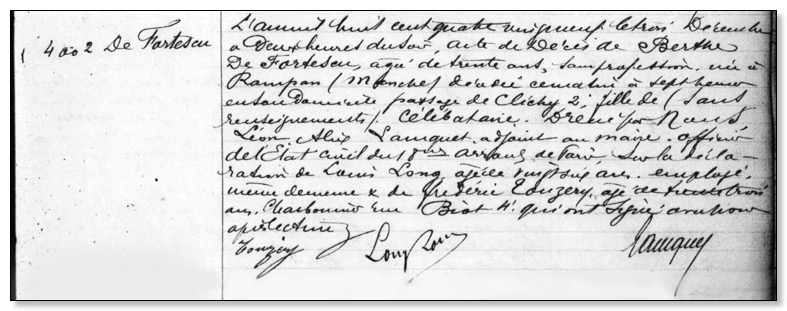 4002 De Fortescu
L'an mil huit cent quatre vingt neuf le trois Décembre
à Deux heures du soir, acte de Décès de Berthe
De Fortescu, agée de trente ans, sans profession, née à
Rampan (Manche) décédée ce matin à sept heures
en son Domicile passage de Clichy 2, fille de (sans
renseignements). Célibataire. Dressé par Nous
Léon Alix Lauquet adjoint au maire. officier
de l'Etat civil du arrond. de Paris, sur la décla-
ration de Louis Long, agé de vingt six ans employé,
même demeure & de Frédéric Touzery, agé de trente trois
ans, Charbonnier rue Biot 4. qui ont signé avec nous
après lecture
Touzery Long